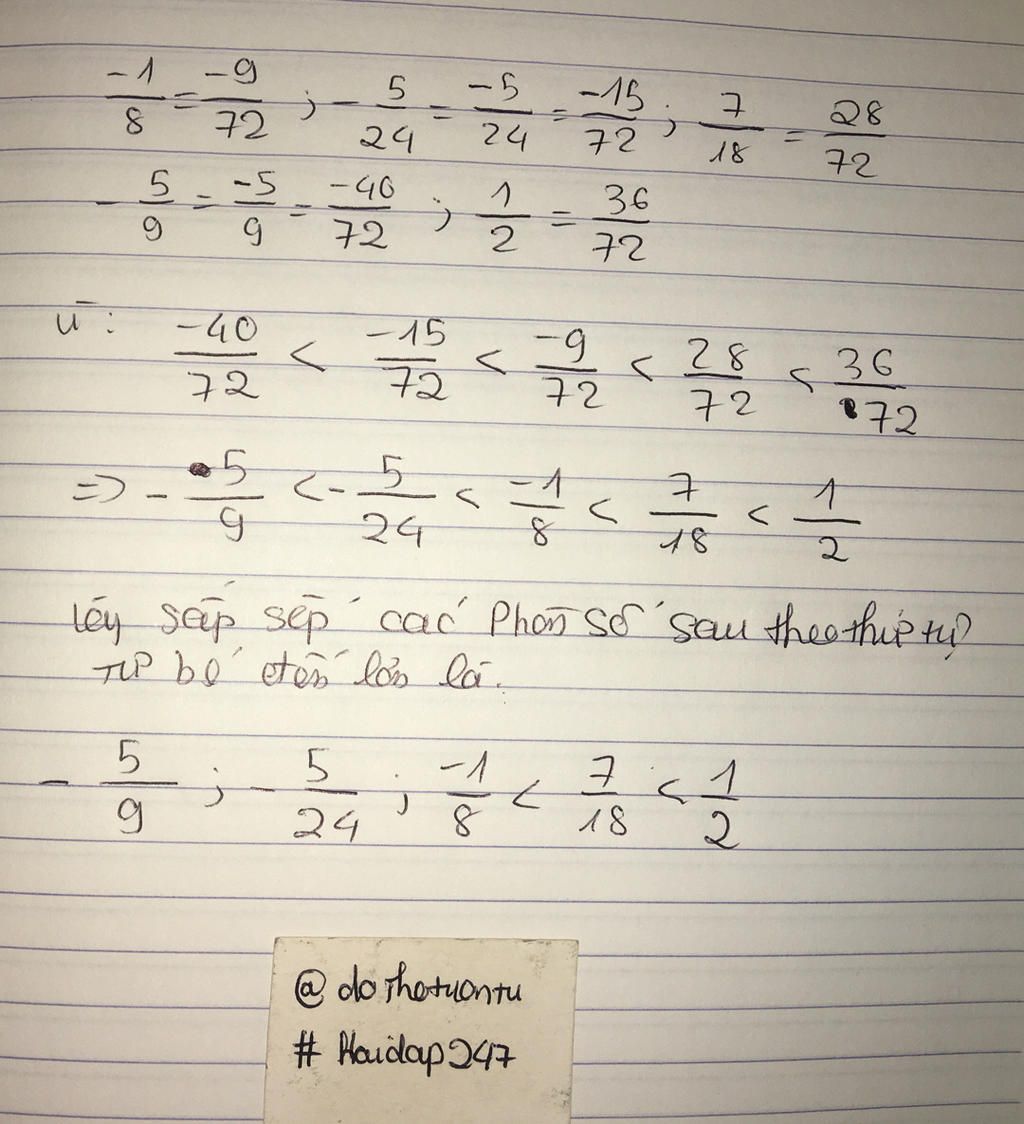 -1/8 = -9/72 ; - 5/24 = -5/24 = -15/72 ; 7/18 = 28/72
- 5/9 = -5/9 = -40/72 ; 1/2 = 36/72
-40/72 < -15/72 < -9/72 < 28/72 < 36/72
=> - 5/9 < - 5/24 < -1/8 < 7/18 < 1/2
sắp sếp các Phân số sau theo thứ tự
từ bé đến lớn là.
- 5/9 ; - 5/24 ; -1/8 < 7/18 < 1/2
@ dothotuontu
# Hoidap247